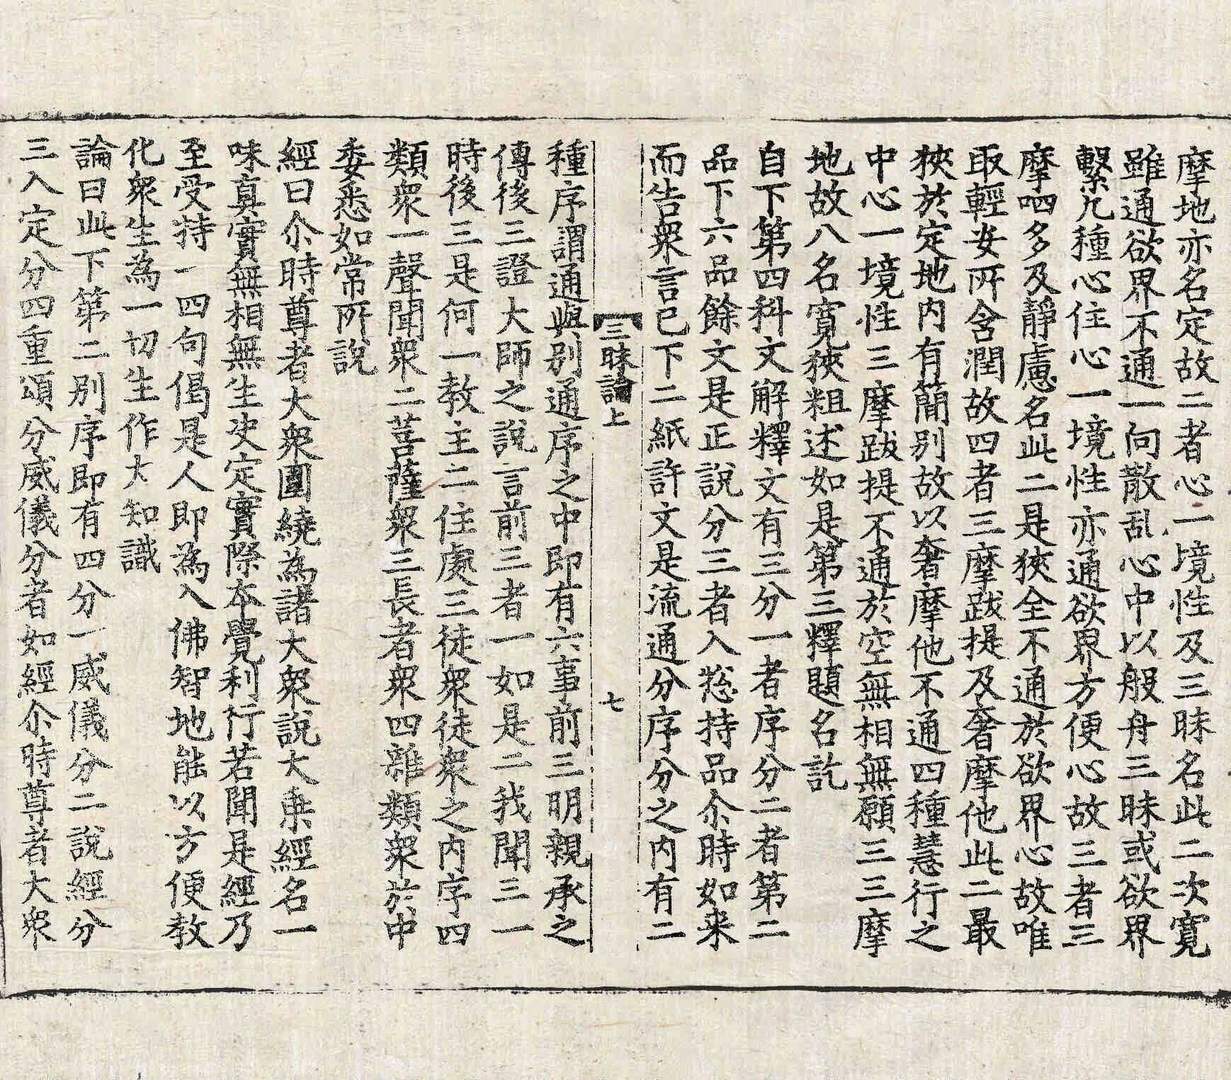 摩地亦名定故二者心一境性及三昧名此二次寬
雖通欲界不通一向散乱心中以般舟三昧或欲界
繫九種心住心一境性亦通欲界方便心故三者三
摩呬多及靜慮名此二是狹全不通於欲界心故唯
取輕安所含潤故四者三摩跋提及奢摩他此二最
狹於定地內有簡別故以奢摩他不通四種慧行之
中心一境性三摩跋提不通於空無相無願三三摩
地故八名寬狹粗述如是第三釋題名訖
自下第四科文解釋文有三分一者序分二者第二
品下六品餘文是正說分三者入惣持品尒時如来
而告衆言已下二紙許文是流通分序分之內有二
三昧論上 七
種序謂通與別通序之中即有六事前三明親承之
傳後三證大師之說言前三者一如是二我聞三一
時後三是何一教主二住處三徒衆徒衆之內序四
類衆一聲聞衆二菩薩衆三長者衆四雜類衆於中
委悉如常所說
經曰尒時尊者大衆圍繞為諸大衆說大乗經名一
味真實無相無生决定實際本覺利行若聞是經乃
至受持一四句偈是人即為入佛智地能以方便教
化衆生為一切生作大知識
論曰此下第二別序即有四分一威儀分二說經分
三入定分四重頌分威儀分者如經尒時尊者大衆